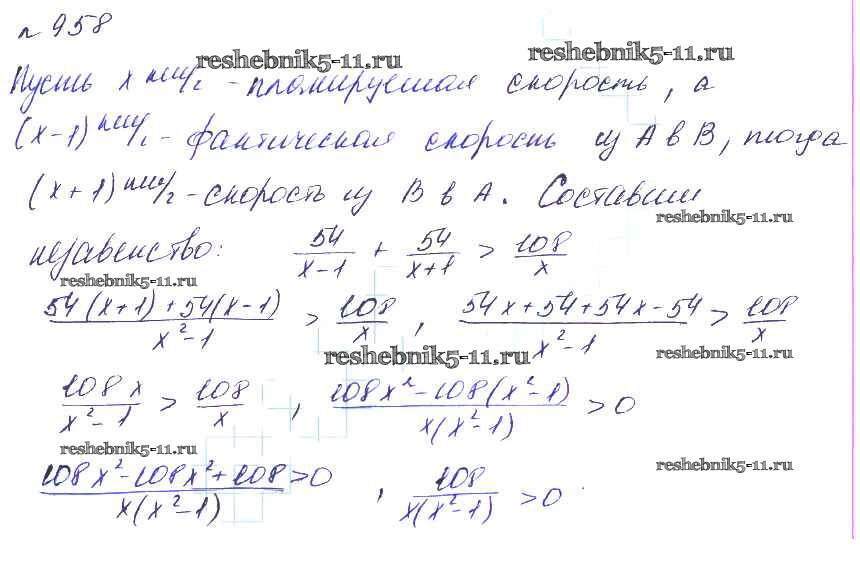 № 958
reshebnik5-11.ru reshebnik5-11.ru
Пусть x км/ч - планируемая скорость, а
(x-1) км/ч - фактическая скорость из A в B, тогда
(x+1) км/ч - скорость из B в A. Составим
reshebnik5-11.ru
неравенство: 54/(x-1) + 54/(x+1) > 108/x
reshebnik5-11.ru
(54(x+1)+54(x-1))/(x²-1) > 108/x , (54x+54+54x-54)/(x²-1) > 108/x
reshebnik5-11.ru reshebnik5-11.ru
108x/(x²-1) > 108/x , (108x²-108(x²-1))/(x(x²-1)) > 0
reshebnik5-11.ru reshebnik5-11.ru
(108x²-108x²+108)/(x(x²-1)) > 0 , 108/(x(x²-1)) > 0